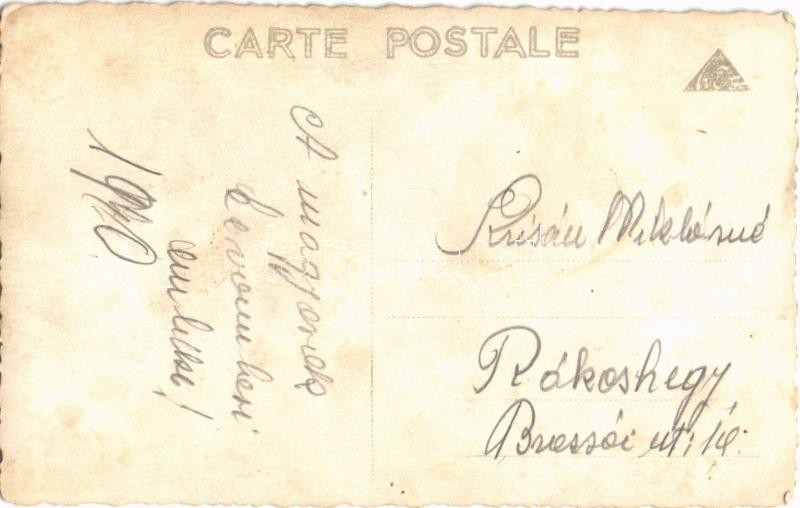 CARTE POSTALE
A magyarok
bevonulási
emléke!
1940
Miklósné
Rákoshegy
Brassói út